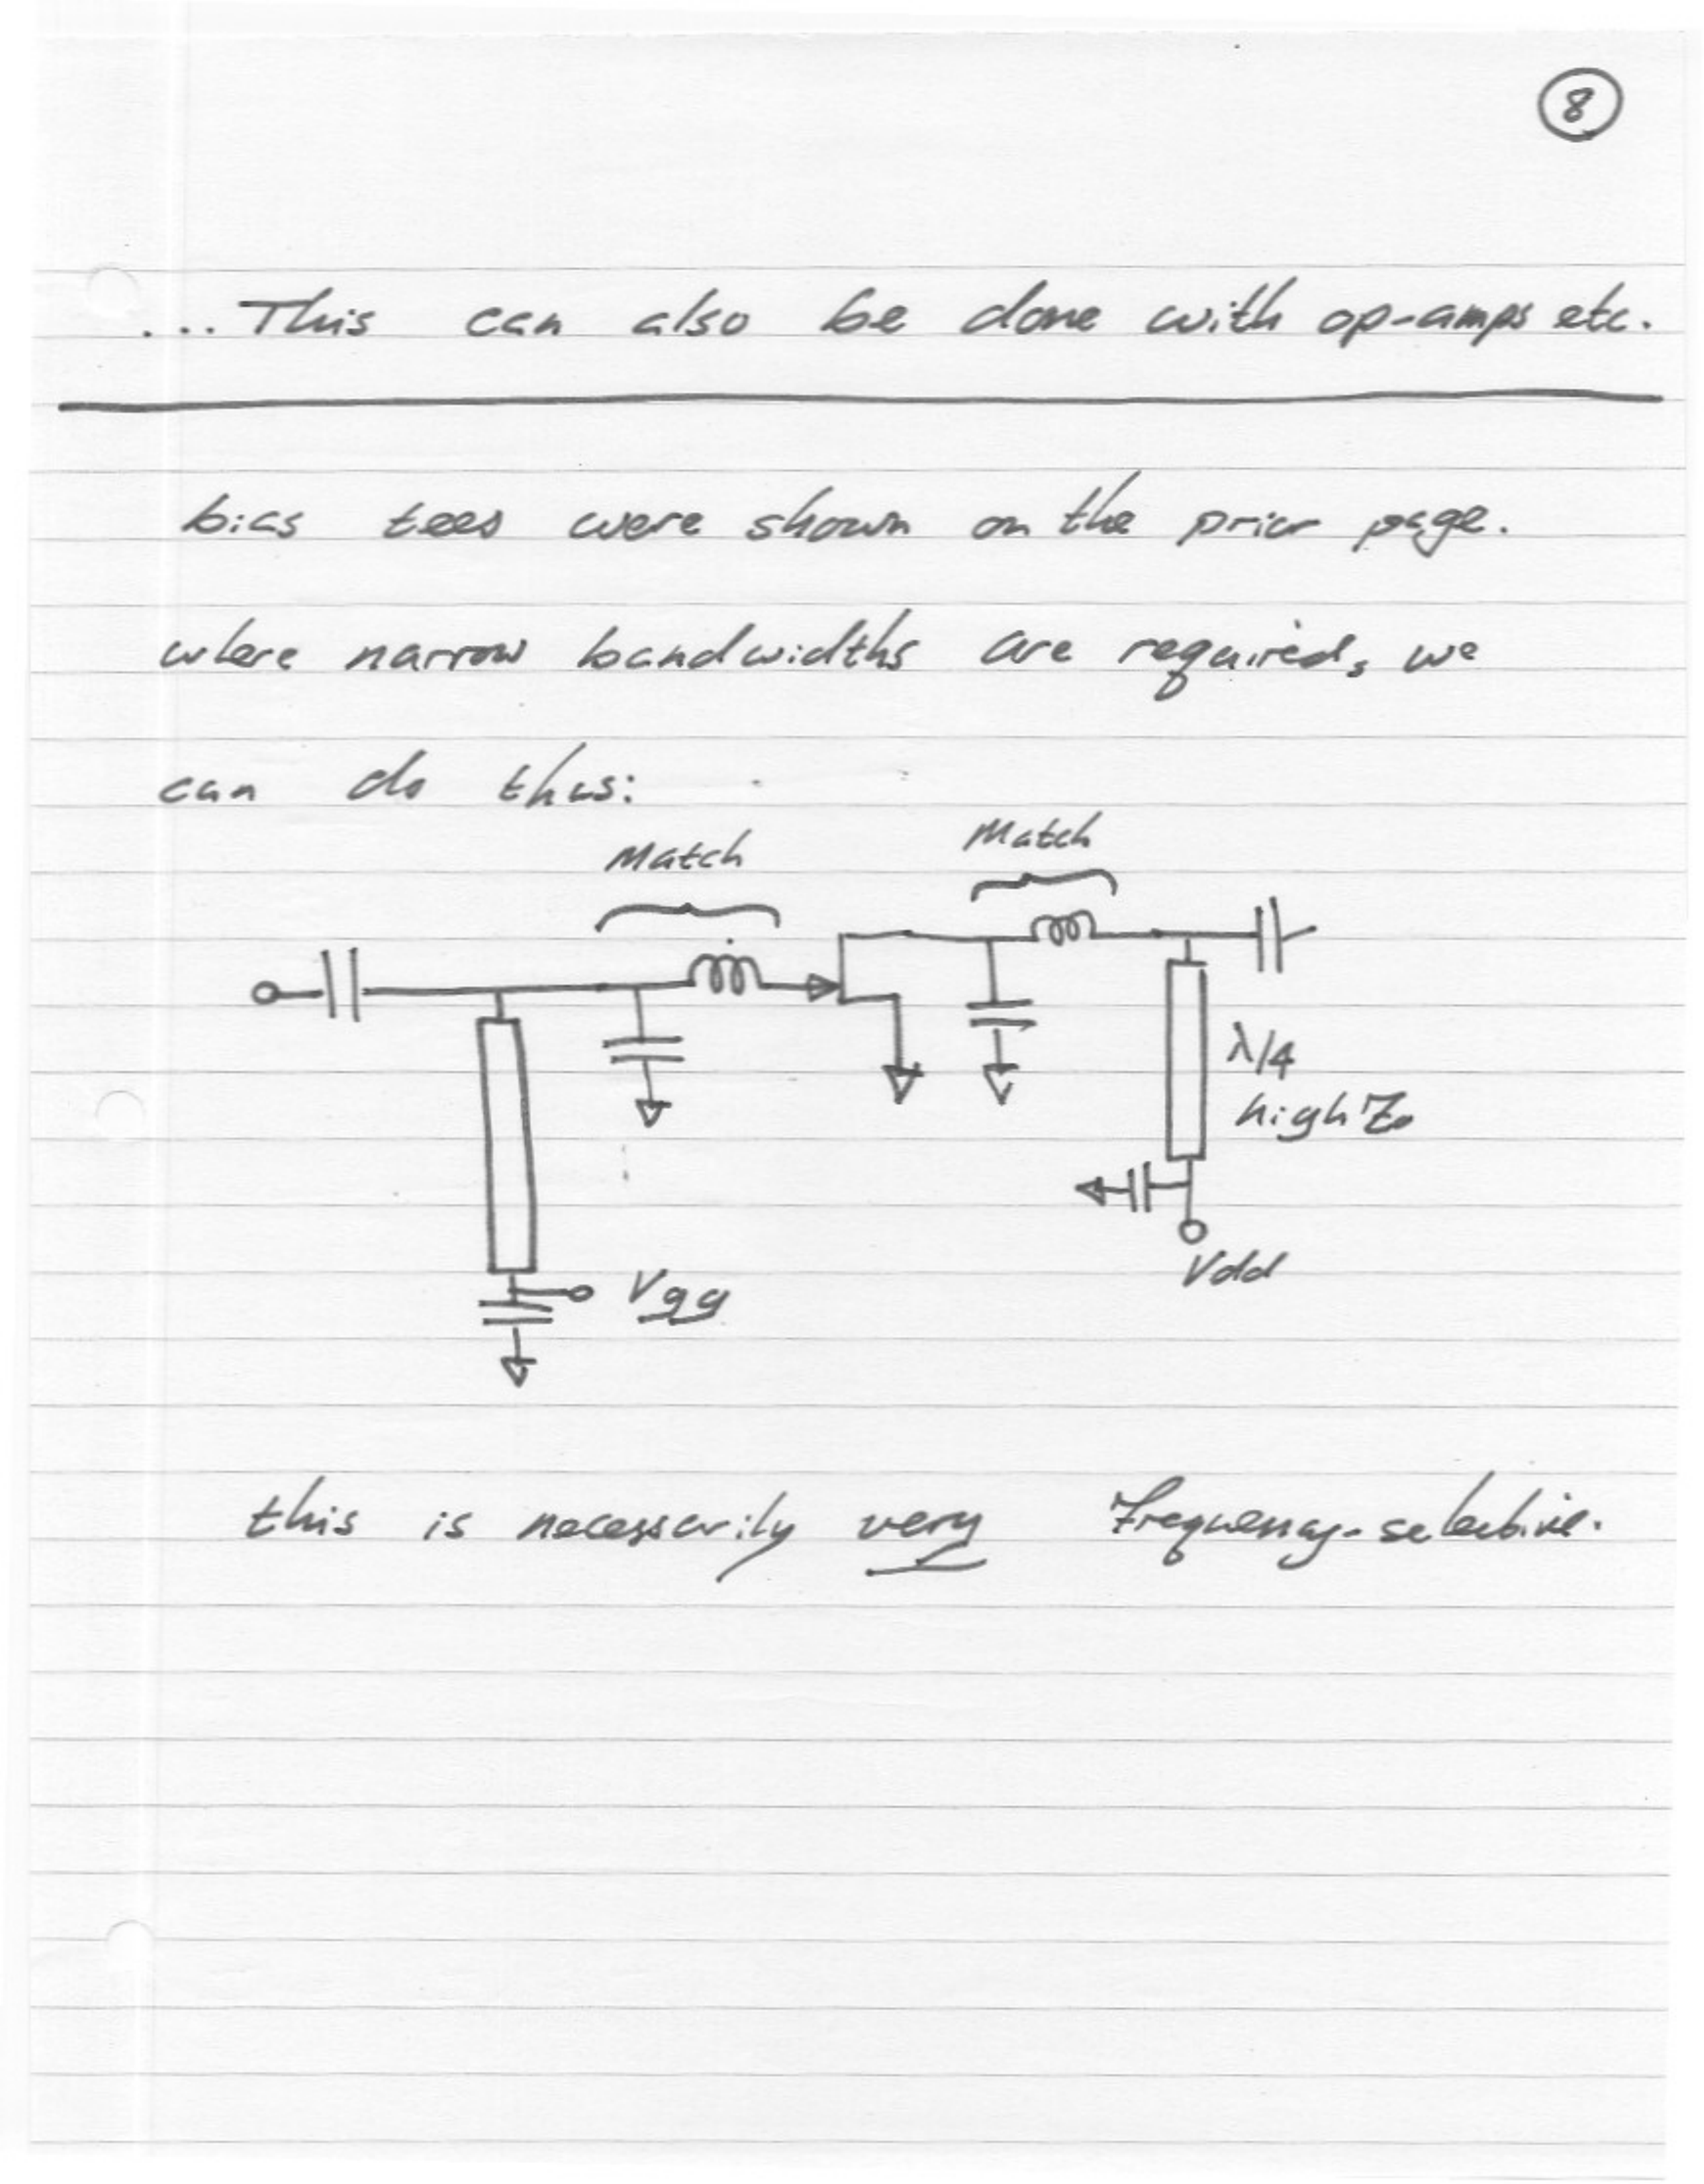 8
... This can also be done with op-amps etc.
bias tees were shown on the prior page.
where narrow bandwidths are required, we
can do this:
Match
Match
λ/4
high Zo
Vdd
Vgg
this is necessarily very frequency-selective.